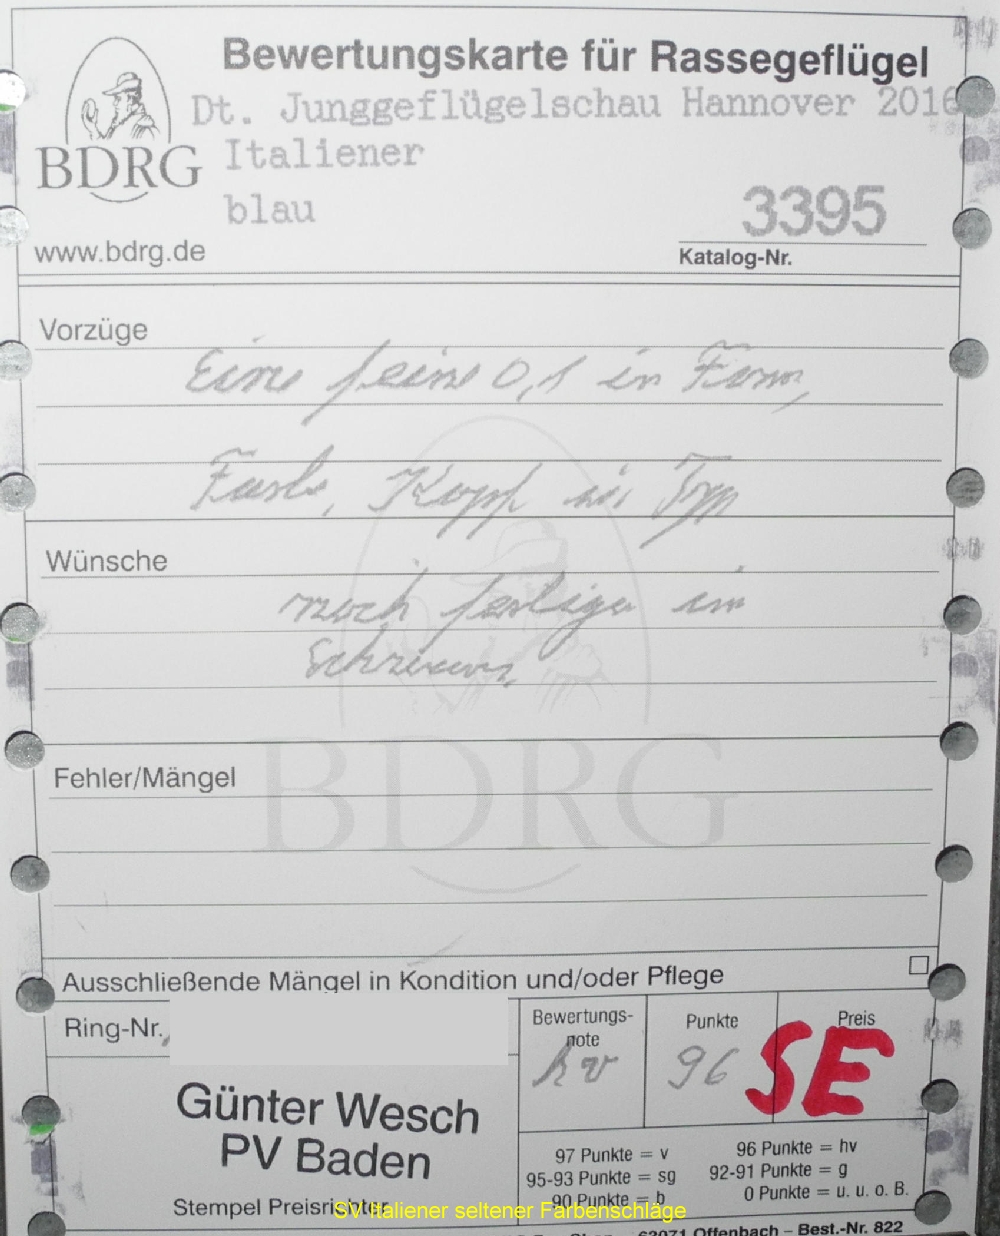 Bewertungskarte für Rassegeflügel
Dt. Junggeflügelschau Hannover 2016
BDRG
Italiener
blau
3395
www.bdrg.de
Katalog-Nr.
Vorzüge
Eine feine 0,1 in Form,
Farbe, Kopf im Typ
Wünsche
noch festiger im
Schwanz
BDRG
Fehler/Mängel
Ausschließende Mängel in Kondition und/oder Pflege
Ring-Nr.
Bewertungs-
note
Punkte
Preis
hv
96
SE
Günter Wesch
PV Baden
97 Punkte = v
96 Punkte = hv
95-93 Punkte = sg
92-91 Punkte = g
90 Punkte = b
0 Punkte = u. u. o. B.
Stempel Preisrichter
SV Italiener seltener Farbenschläge
63071 Offenbach – Best.-Nr. 822